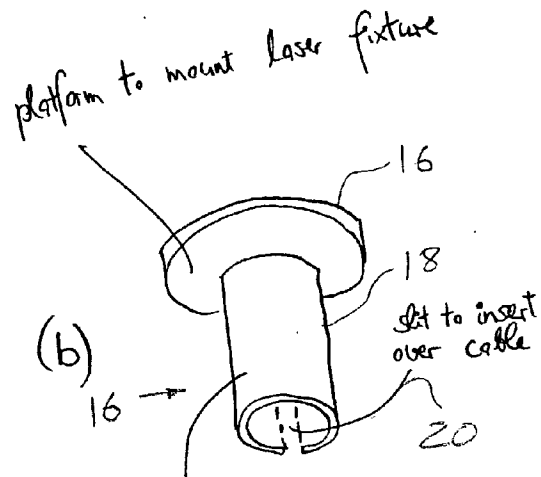 platform to mount laser fixture
16
18
slit to insert
over cable
(b)
16
20